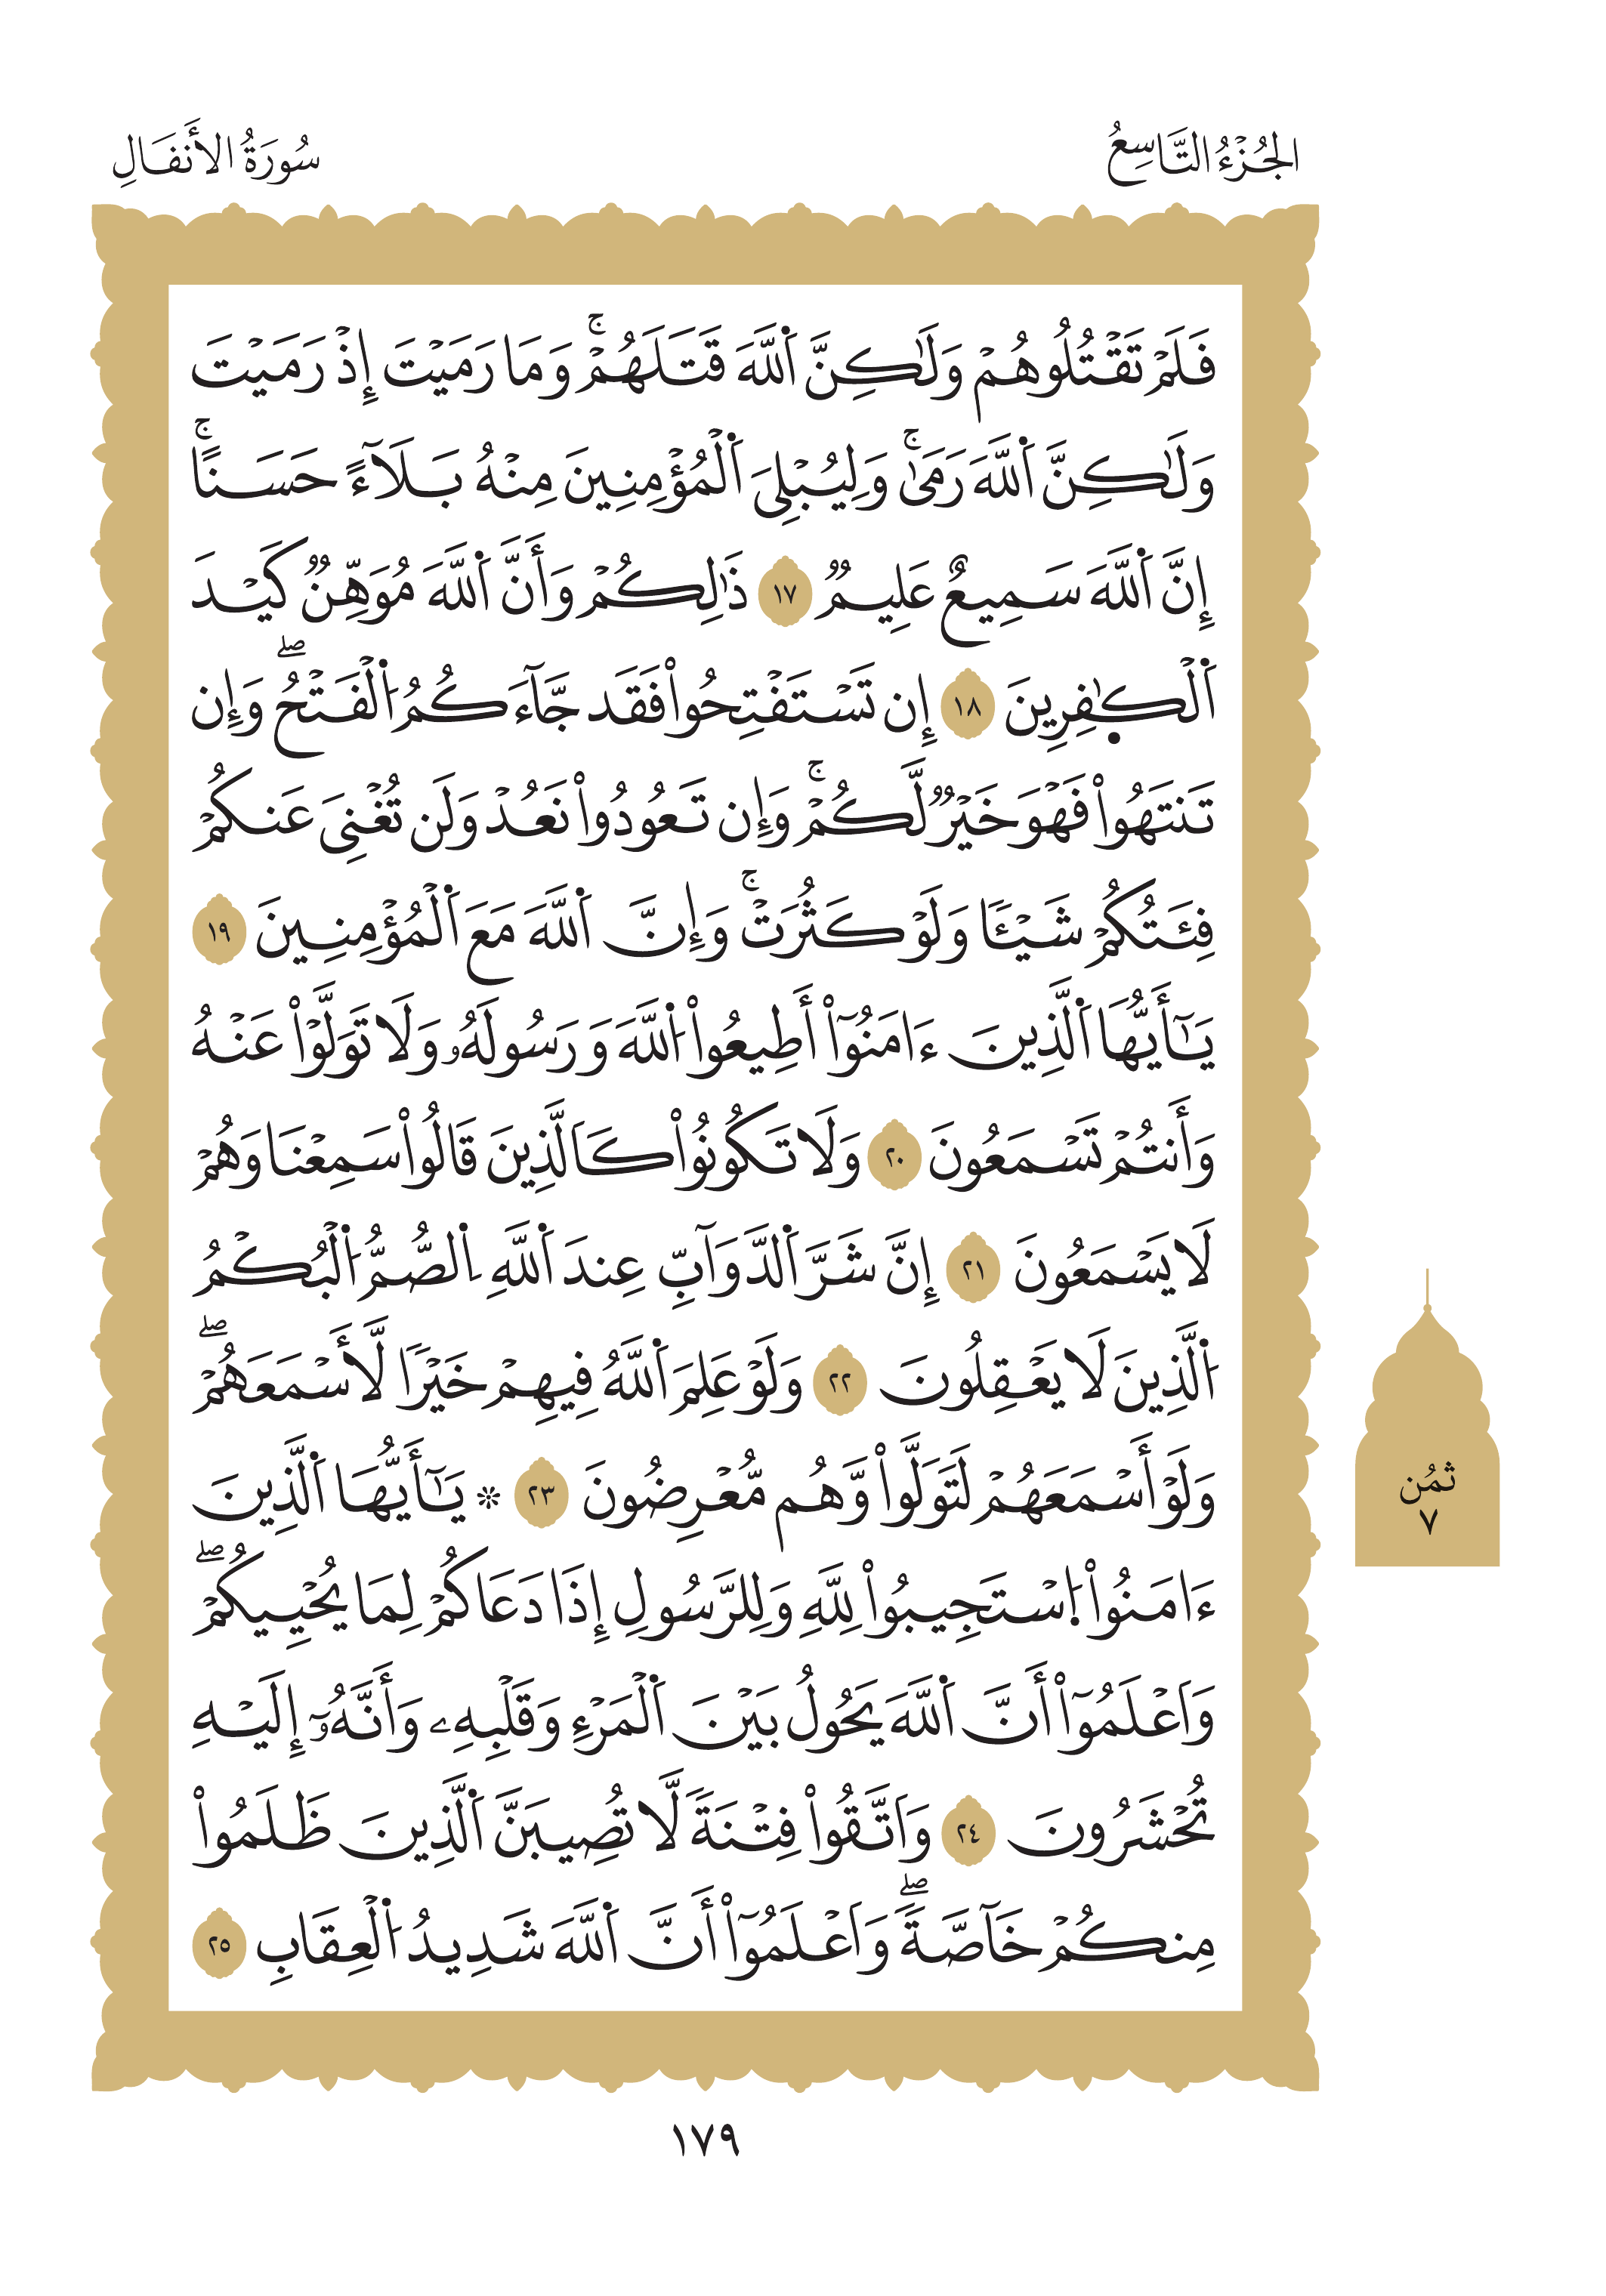 الجُزْءُ التَّاسِعُ
سُورَةُ الأَنفَالِ
فَلَمْ تَقْتُلُوهُمْ وَلَٰكِنَّ اَ۬للَّهَ قَتَلَهُمْۚ وَمَا رَمَيْتَ إِذْ رَمَيْتَ
وَلَٰكِنَّ اَ۬للَّهَ رَمَىٰۚ وَلِيُبْلِيَ اَ۬لْمُؤْمِنِينَ مِنْهُ بَلَآءً حَسَنًاۚ
إِنَّ اَ۬للَّهَ سَمِيعٌ عَلِيمٞ ١٧ ذَٰلِكُمْ وَأَنَّ اَ۬للَّهَ مُوَهِّنٞ كَيْدَ
اَ۬لْكٰٜفِرِينَ ١٨ إِن تَسْتَفْتِحُواْ فَقَد جَّآءَكُمُ اُ۬لْفَتْحُۖ وَإِن
تَنتَهُواْ فَهْوَ خَيْرٞ لَّكُمْۚ وَإِن تَعُودُواْ نَعُدْ وَلَن تُغْنِيَ عَنكُمْ
فِئَتُكُمْ شَيْـٔٗا وَلَوْ كَثُرَتْۚ وَإِنَّ اَ۬للَّهَ مَعَ اَ۬لْمُؤْمِنِينَ ١٩
يَٰٓأَيُّهَا اَ۬لَّذِينَ ءَامَنُوٓاْ أَطِيعُواْ اُ۬للَّهَ وَرَسُولَهُۥ وَلَا تَوَلَّوْاْ عَنْهُ
وَأَنتُمْ تَسْمَعُونَ ٢٠ وَلَا تَكُونُواْ كَالَّذِينَ قَالُواْ سَمِعْنَا وَهُمْ
لَا يَسْمَعُونَ ٢١ إِنَّ شَرَّ اَ۬لدَّوَآبِّ عِندَ اَ۬للَّهِ اِ۬لصُّمُّ اُ۬لْبُكْمُ
اُ۬لَّذِينَ لَا يَعْقِلُونَ ٢٢ وَلَوْ عَلِمَ اَ۬للَّهُ فِيهِمْ خَيْرٗا لَّأَسْمَعَهُمْۖ
وَلَوْ أَسْمَعَهُمْ لَتَوَلَّواْ وَّهُم مُّعْرِضُونَ ٢٣ ۞ يَٰٓأَيُّهَا اَ۬لَّذِينَ
ءَامَنُواْ اُ۪سْتَجِيبُواْ لِلَّهِ وَلِلرَّسُولِ إِذَا دَعَاكُمْ لِمَا يُحْيِيكُمْۖ
وَاَعْلَمُوٓاْ أَنَّ اَ۬للَّهَ يَحُولُ بَيْنَ اَ۬لْمَرْءِ وَقَلْبِهِۦ وَأَنَّهُۥٓ إِلَيْهِ
تُحْشَرُونَ ٢٤ وَاَتَّقُواْ فِتْنَةٗ لَّا تُصِيبَنَّ اَ۬لَّذِينَ ظَلَمُواْ
مِنكُمْ خَآصَّةٗۖ وَاَعْلَمُوٓاْ أَنَّ اَ۬للَّهَ شَدِيدُ اُ۬لْعِقَابِ ٢٥
ثُمُن
٧
١٧٩